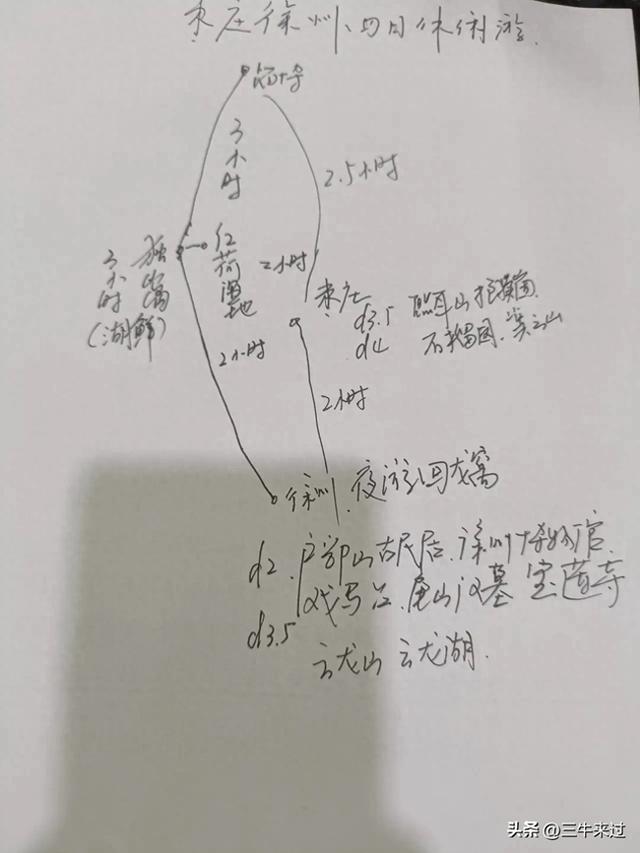 枣庄徐州、四日休闲游.
3小时
2.5小时
独山岛
3小时
(湖鲜)
红荷湿地
2小时
枣庄
d3.5
d4 石榴园.
2小时
2小时
徐州.夜游回龙窝
d2.户部山古民居.徐州博物馆.
戏马台.龟山汉墓 宝莲寺
d3.5
云龙山 云龙湖.
头条 @三牛来过